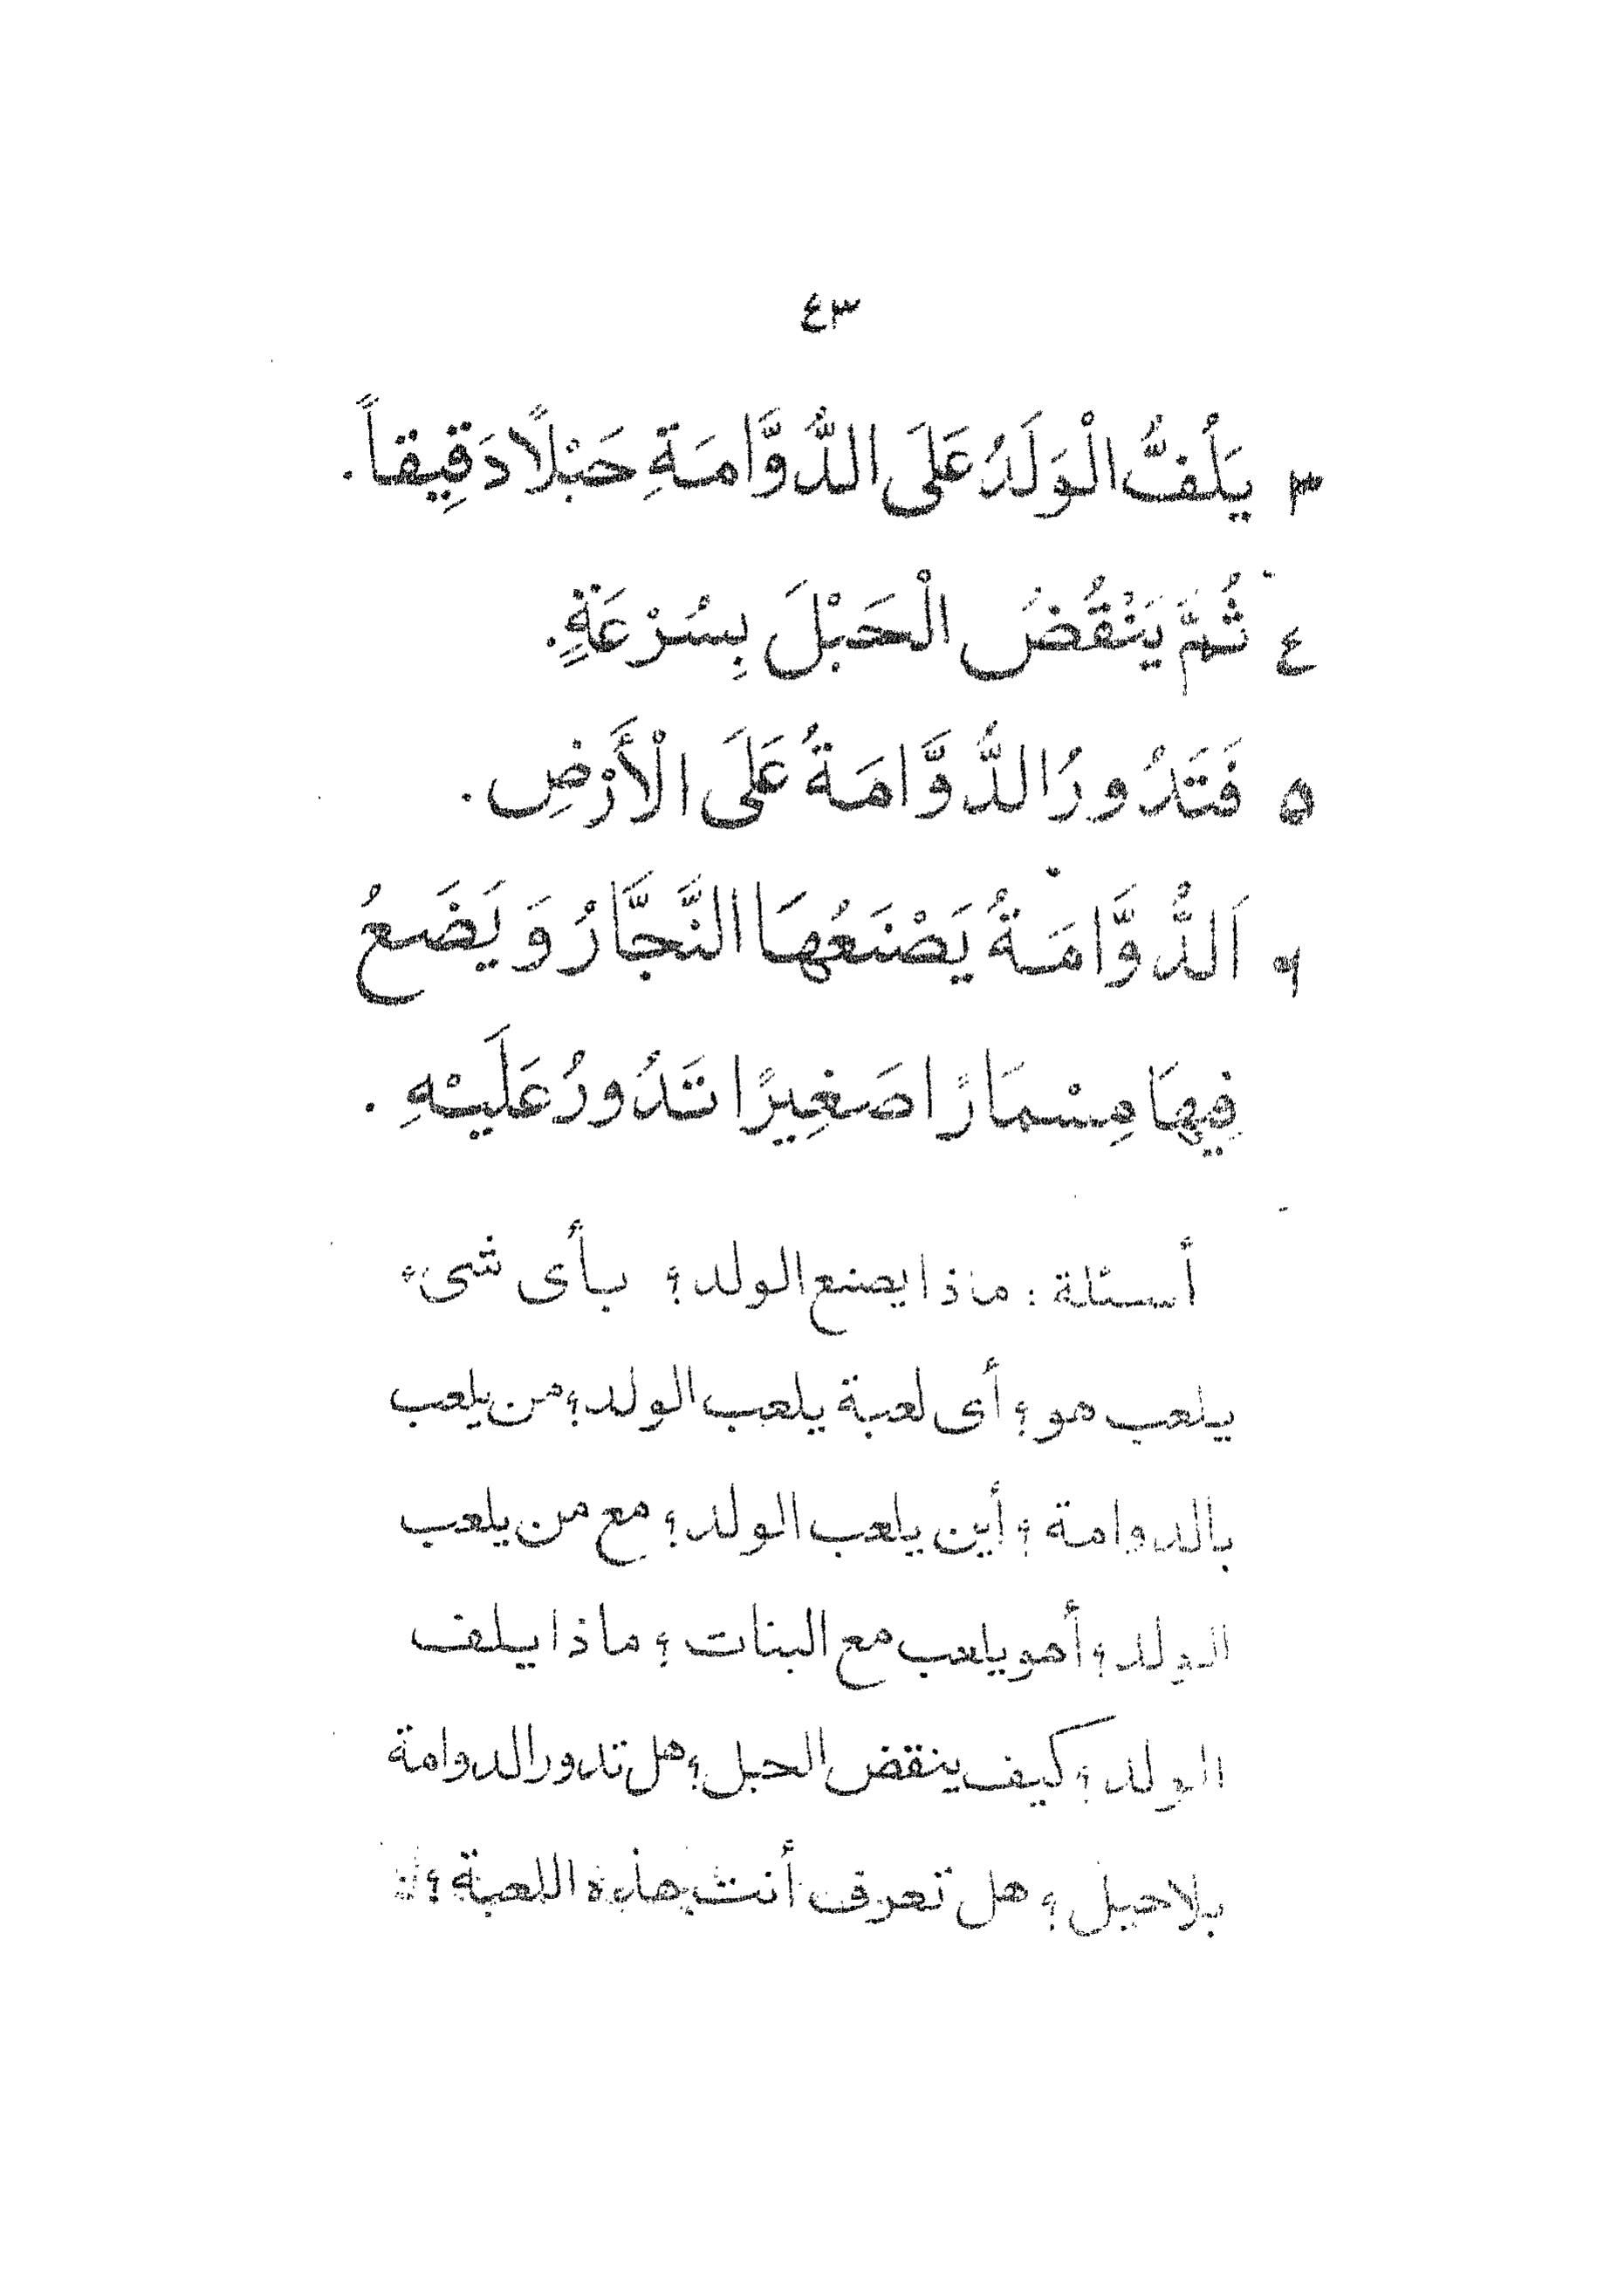 ٤٣
٣ يَلُفُّ الْوَلَدُ عَلَى الدُّوَّامَةِ حَبْلًا دَقِيقاً.
٤ ثُمَّ يَنْقُضُ الْحَبْلَ بِسُرْعَةٍ.
٥ فَتَدُورُ الدُّوَّامَةُ عَلَى الْأَرْضِ.
٦ اَلدُّوَّامَةُ يَصْنَعُهَا النَّجَّارُ وَيَضَعُ
فِيهَا مِسْمَارًا صَغِيرًا تَدُورُ عَلَيْهِ.
أسئلة: ماذا يصنع الولد؟ بأى شىء
يلعب هو؟ أى لعبة يلعب الولد؟ من يلعب
بالدوامة؟ أين يلعب الولد؟ مع من يلعب
الولد؟ أهو يلعب مع البنات؟ ماذا يلف
الولد؟ كيف ينقض الحبل؟ هل تدور الدوامة
بلا حبل؟ هل تعرف أنت هذه اللعبة؟